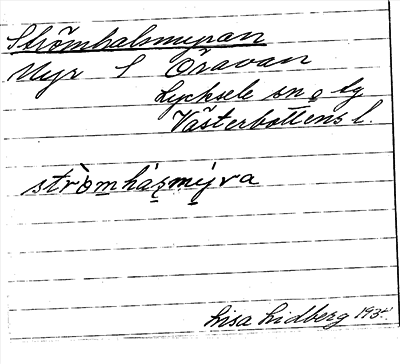 Strömhalsmyran
Myr S Öravan
Lycksele sn o lg
Västerbottens l.
stròm̲há̲s̲mý̲ra
Lisa Lidberg